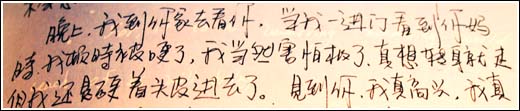 晚上,我到你家去看你。当我一进门看到你妈
时,我顿时被吓了,我当时害怕极了,真想转身就走
但我还是硬着头皮进去了。见到你,我真高兴,我真